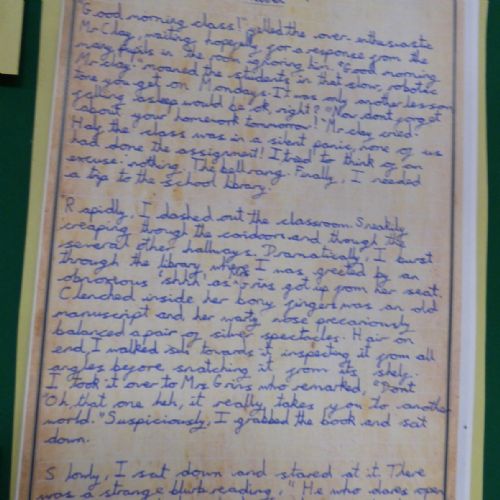 "Good morning class!" yelled the over enthusiastic
Mr Clay, waiting hopefully for a response from the
many pupils in the room ignoring him. "Good morning
Mr clay." moaned the students in that slow, robotic
tone you get on Mondays. It was only another lesson,
falling asleep would be ok, right? "Now don't forget
about your homework tommorow!" Mr clay cried.
Half the class was in a silent panic, none of us
had done the assignment! I tried to think of an
excuse: nothing. The bell rang. Finally, I needed
a trip to the school library.
Rapidly, I dashed out the classroom. Sneakily
creaping through the coridoors and though the
several other hallways. Dramatically, I burst
through the library, where I was greeted by an
obnoxious 'shhh' as Grins got up from her seat.
Clenched inside her bony fingers was an old
manuscript and her nose precariously
balanced a pair of silver spectacles. Hair on
end, I walked towards it inspecting it from all
angles before snatching it from its shelf.
I took it over to Mrs Grins who remarked, "Dont
"Oh, that one heh, it really takes you to another
world." Suspiciously, I grabbed the book and sat
down.
Slowly, I sat down and stared at it. There
was a strange blurb reading, "He who dares open